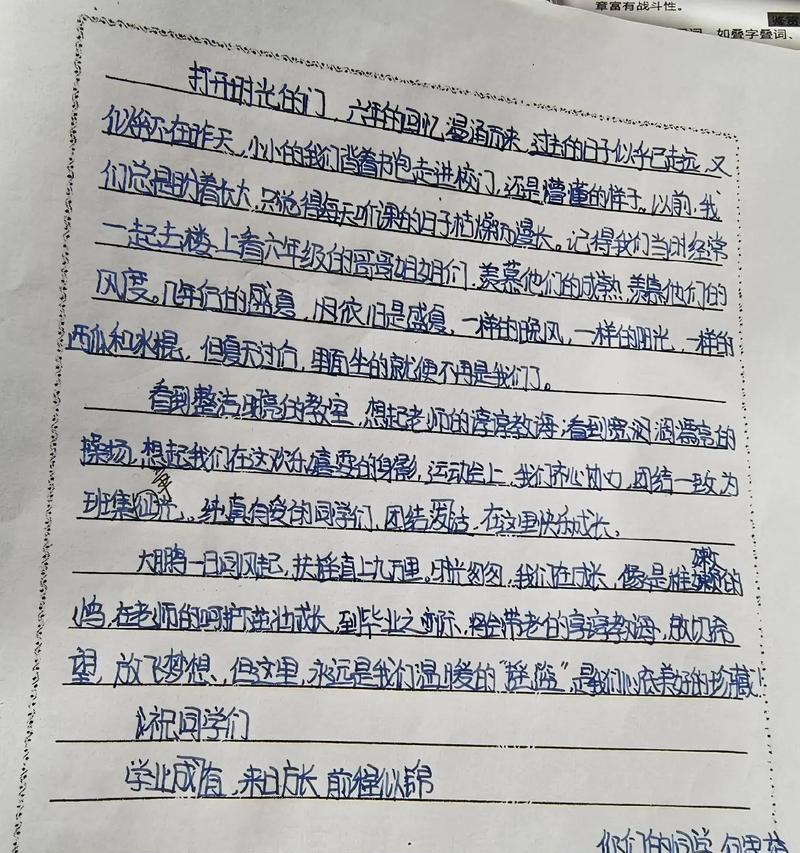 章富有战斗性。
如叠字叠词、
打开时光的门，六年的回忆，温涌而来，过去的日子似乎已走远，又
似乎还在昨天，小小的我们背着书包走进校门，还是懵懂的样子。以前，我
们总是盼着长大，只觉得每天听课的日子枯燥而漫长。记得我们当时经常
一起去楼上看六年级的哥哥姐姐们，羡慕他们的成熟，羡慕他们的
风度。几年后的盛夏，也依旧是盛夏，一样的晚风，一样的阳光，一样的
西瓜和冰棍，但夏天过后，里面坐的就便不再是我们了。
看到整洁明亮的教室，想起老师的谆谆教诲；看到宽阔漂亮的
操场，想起我们在这欢乐嬉耍的身影，运动会上，我们齐心协力，团结一致为
班集争光、纯真有爱的同学们，团结活泼，在这里快乐成长。
大鹏一日同风起，扶摇直上九万里。时光匆匆，我们在成长，像是稚嫩的
鸟，在老师的呵护下茁壮成长，到毕业之际，将会带老师的谆谆教诲，放飞希
望，放飞梦想、但这里，永远是我们温暖的“摇篮”，是我们心底美好的珍藏！
祝同学们
学业成有，来日方长 前程似锦
你们的同学